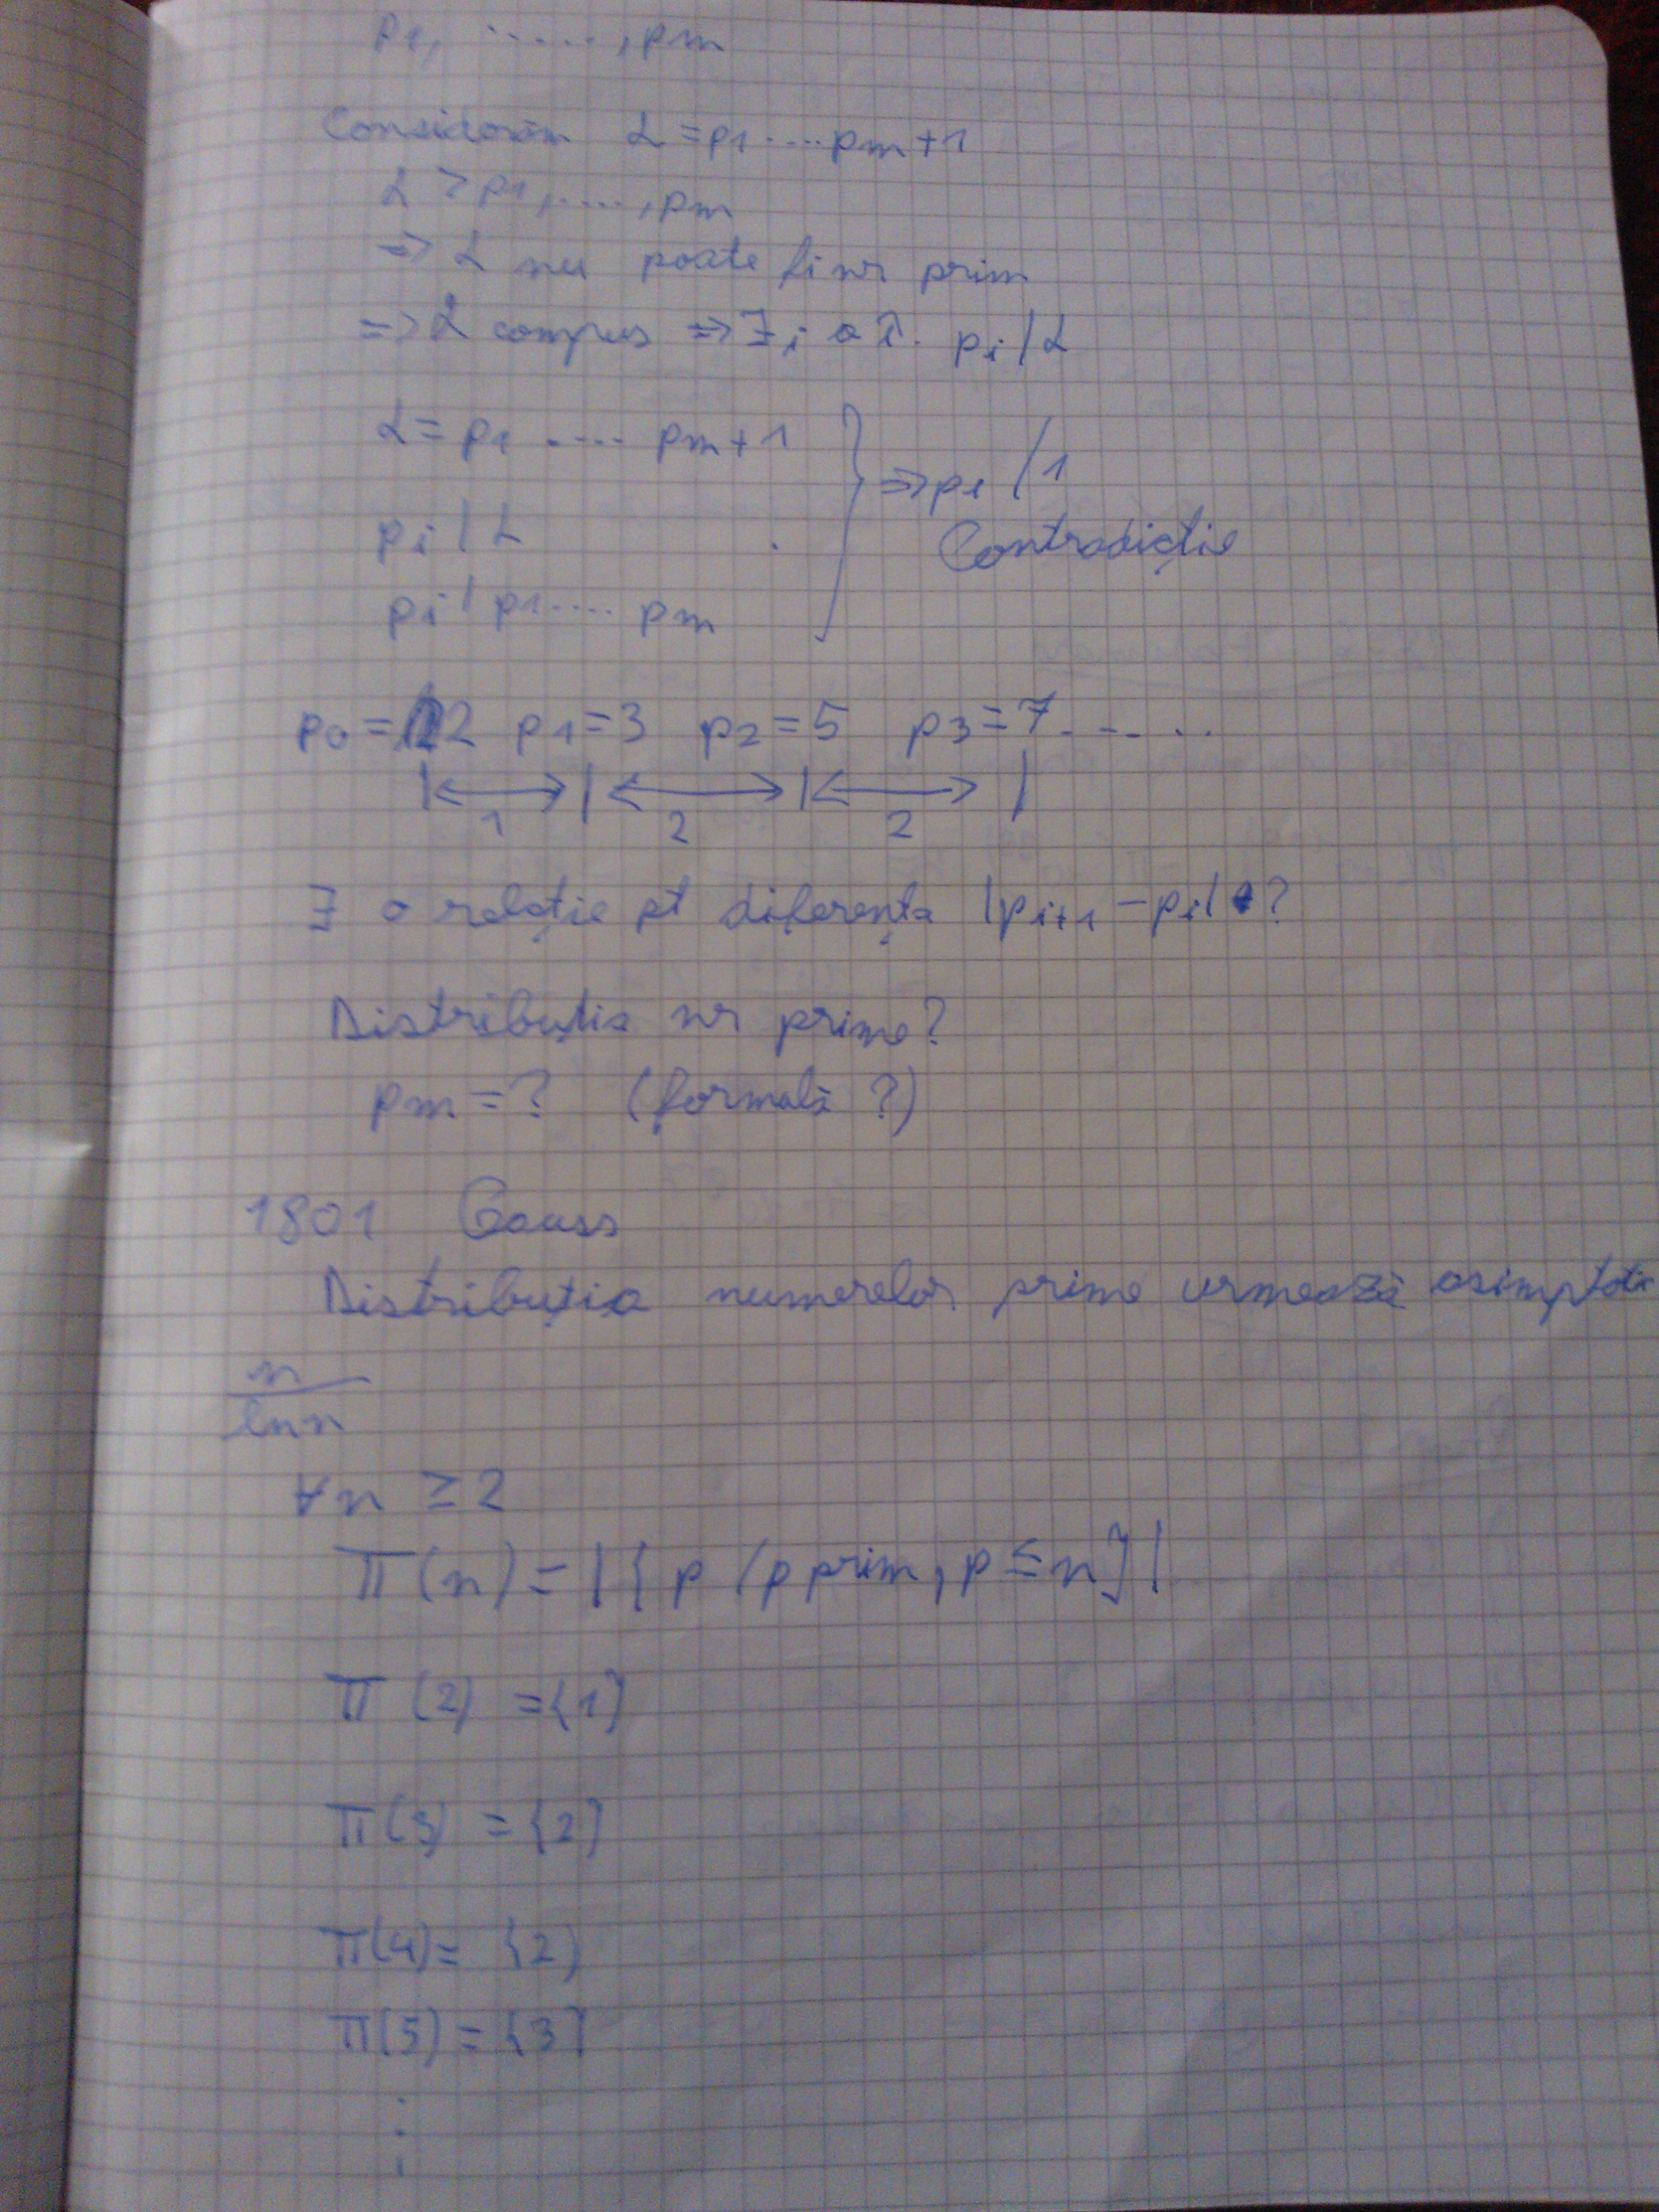 p1, ....., pm
Considerăm α = p1 .... pm + 1
α > p1, ...., pm
=> α nu poate fi nr prim
=> α compus => ∃ i a î. pi / α
α = p1 .... pm + 1
=> pi / 1
pi / α
Contradicție
pi / p1 .... pm
p0 = 2 p1 = 3 p2 = 5 p3 = 7 .....
1 2 2
∃ o relație pt diferența |pi+1 - pi| ?
Distribuția nr prime?
pm = ? (formulă ?)
1801 Gauss
Distribuția numerelor prime urmează asimptotic
n
ln n
∀n ≥ 2
Π(n) = |{p / p prim, p ≤ n}|
Π(2) = {1}
Π(3) = {2}
Π(4) = {2}
Π(5) = {3}